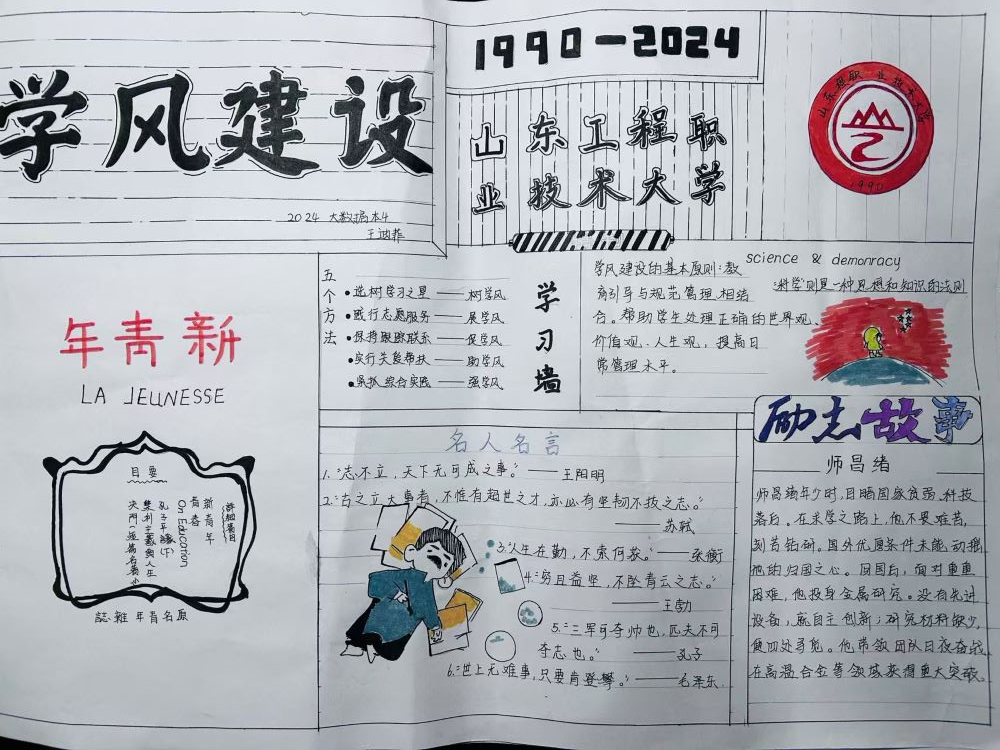 学风建设
2024 大数据本4
王迪菲
1990-2024
山东工程职
业技术大学
山东工程职业技术大学
1990
年青新
LA JEUNESSE
目要
新青年
青春
On Education
孔子平议(下)
誌雜年青名原
五个方法
•选树学习之星——树学风
•践行志愿服务——展学风
•保持跟踪联系——促学风
•实行关爱帮扶——助学风
•紧抓综合实践——强学风
学习墙
学风建设的基本原则:教
育引导与规范管理相结
合。帮助学生处理正确的世界观、
价值观、人生观,提高日
常管理水平。
science & demonracy
科学则是一种思想和知识的法则
名人名言
1.“志不立,天下无可成之事。”——王阳明
2.“古之立大事者,不惟有超世之才,亦必有坚韧不拔之志。”
苏轼
3.“人生在勤,不索何获。”——张衡
4.“穷且益坚,不坠青云之志。”
——王勃
5.“三军可夺帅也,匹夫不可
夺志也。”——孔子
6.“世上无难事,只要肯登攀。”——毛泽东
励志故事
师昌绪
师昌绪年少时,目睹国家贫弱、科技
落后。在求学之路上,他不畏难苦,
刻苦钻研。国外优厚条件未能动摇
他的归国之心。回国后,面对重重
困难,他投身金属研究。没有先进
设备,就自主创新;研究材料缺少,
便四处寻觅。他带领团队日夜奋战,
在高温合金等领域获得重大突破。